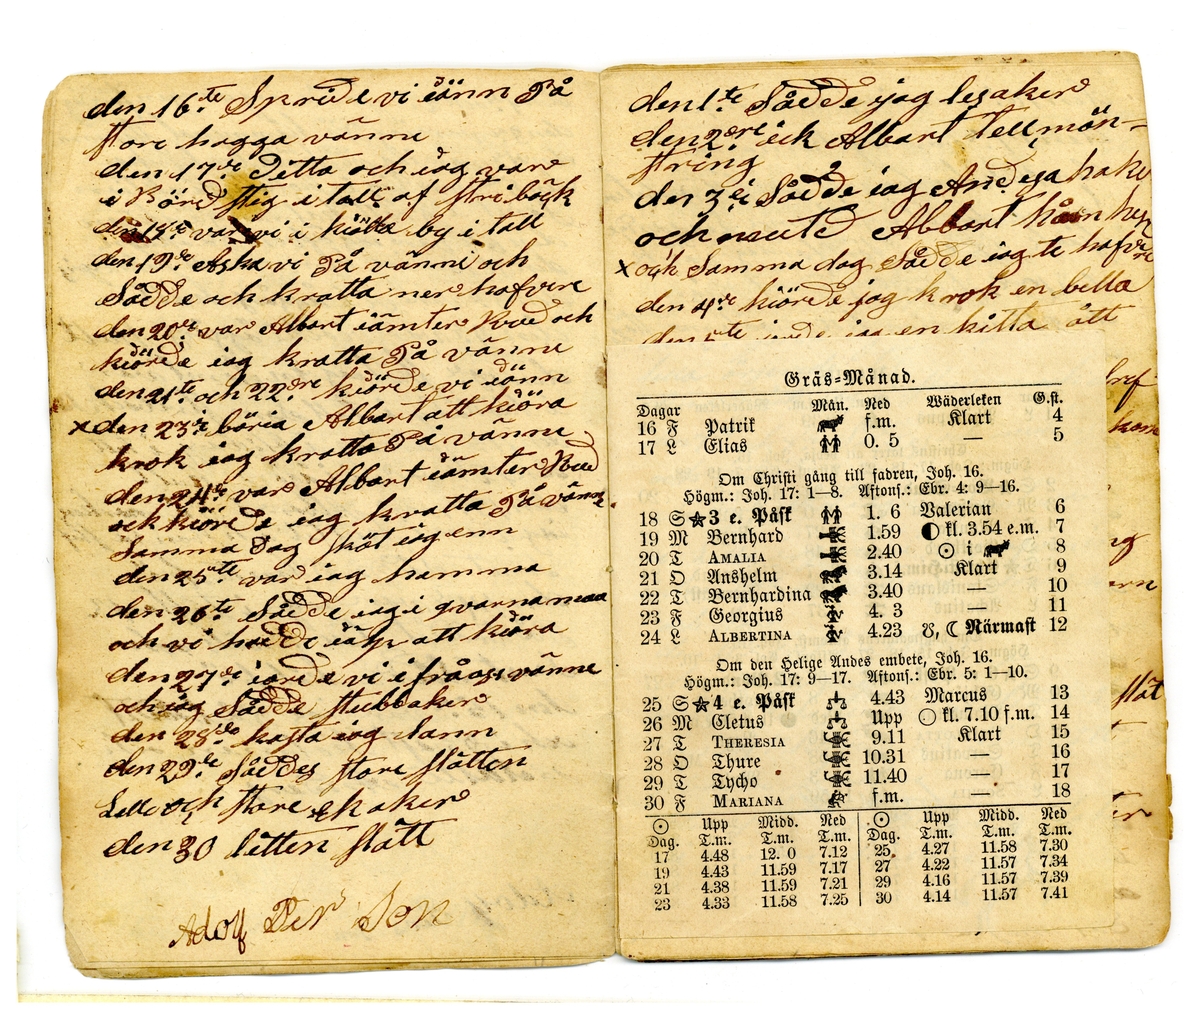 den 16te Spride vi iänn På
store hagga vänne
den 17de Detta och iag var
i Börd stig i tall af stribåck
den 18de var vi i kiötta by i tall
den 19de Aska vi På vänne och
Sådde och kratta ner hafvre
den 20de var Albart iämter Rued och
kiörde iag kratta På vänne
den 21te och 22dre kiörde vi iänn
x den 23ie böria Albart att kiöra
krok iag kratta På vänne
den 24de var Albart iämter Rued
ock kiörde iag kratta På vänne
Samma dag sköt iag enn
den 25te var iag hamma
den 26te Sådde iag i qvarna maa
och vi hadde iäJp att kiöra
den 27de iorde vi ifråga vänne
och iag Sådde stubbaker
den 28de kasta iag dann
den 29de Såddes store slätten
Lelle och store ekaker
den 30 letten slått
Adolf Per Son
den 1te Sådde jag legaker
den 2dre ick Albart tell mön-
string
den 3ie Sådde iag Andega hake
och mutte Albart kåmm hem
x ock Samma dag Sådde iag te hafvre
den 4de kiörde jag krok en betta
den 5te iorde iag en kitta ått
Gräs=Månad.
Dagar Mån. Ned Wäderleken G.st.
16 F Patrik f.m. Klart 4
17 L Elias 0. 5 — 5
Om Christi gång till fadren, Joh. 16.
Högm.: Joh. 17: 1—8. Aftons.: Ebr. 4: 9—16.
18 S 3 e. Påsk 1. 6 Valerian 6
19 M Bernhard 1.59 kl. 3.54 e.m. 7
20 T AMALIA 2.40 ☉ i 8
21 O Anshelm 3.14 Klart 9
22 T Bernhardina 3.40 — 10
23 F Georgius 4. 3 — 11
24 L ALBERTINA 4.23 ☋, ☾ Närmast 12
Om den Helige Andes embete, Joh. 16.
Högm.: Joh. 17: 9—17. Aftons.: Ebr. 5: 1—10.
25 S 4 e. Påsk 4.43 Marcus 13
26 M Cletus Upp kl. 7.10 f.m. 14
27 T THERESIA 9.11 Klart 15
28 O Thure 10.31 — 16
29 T Tycho 11.40 — 17
30 F MARIANA f.m. — 18
☉ Upp Midd. Ned ☉ Upp Midd. Ned
Dag. T.m. T.m. T.m. Dag. T.m. T.m. T.m.
17 4.48 12. 0 7.12 25 4.27 11.58 7.30
19 4.43 11.59 7.17 27 4.22 11.57 7.34
21 4.38 11.59 7.21 29 4.16 11.57 7.39
23 4.33 11.58 7.25 30 4.14 11.57 7.41